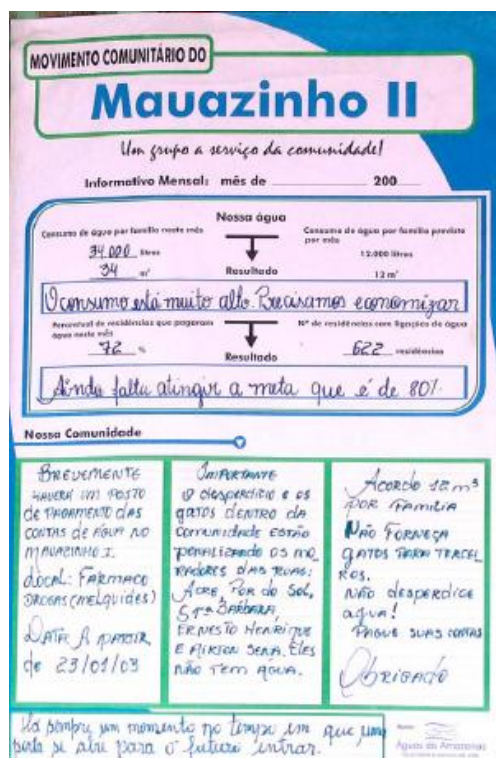 MOVIMENTO COMUNITÁRIO DO
Mauazinho II
Um grupo a serviço da comunidade!
Informativo Mensal: mês de 200
Nossa água
Consumo de água por família neste mês
34.000 litros
34 m³
Resultado
Consumo de água por família prevista por mês
12.000 litros
12 m³
O consumo está muito alto. Precisamos economizar
Percentual de residências que pagaram água neste mês
72 %
Resultado
Nº de residências com ligações de água
622 residências
Ainda falta atingir a meta que é de 80%.
Nossa Comunidade
BREVEMENTE
HAVERÁ UM POSTO
DE PAGAMENTO DAS
CONTAS DE ÁGUA NO
MAUAZINHO I.
LOCAL: FARMACO
DROGAS (MELQUIDES)
DATA A PARTIR
de 23/01/03
IMPORTANTE
O desperdício e os
gatos dentro da
comunidade estão
penalizando os mo
radores das ruas:
Acre, Por do Sol,
Stª Bárbara,
Ernesto Henrique
e Airton Sena. Eles
não tem água.
Acordo 12 m³
por família
Não forneça
gatos para tercei
ros.
Não desperdice
agua!
Pague suas contas
Obrigado
Há sempre um momento no tempo em que uma
porta se abre para o futuro entrar.
Apoio:
Águas do Amazonas